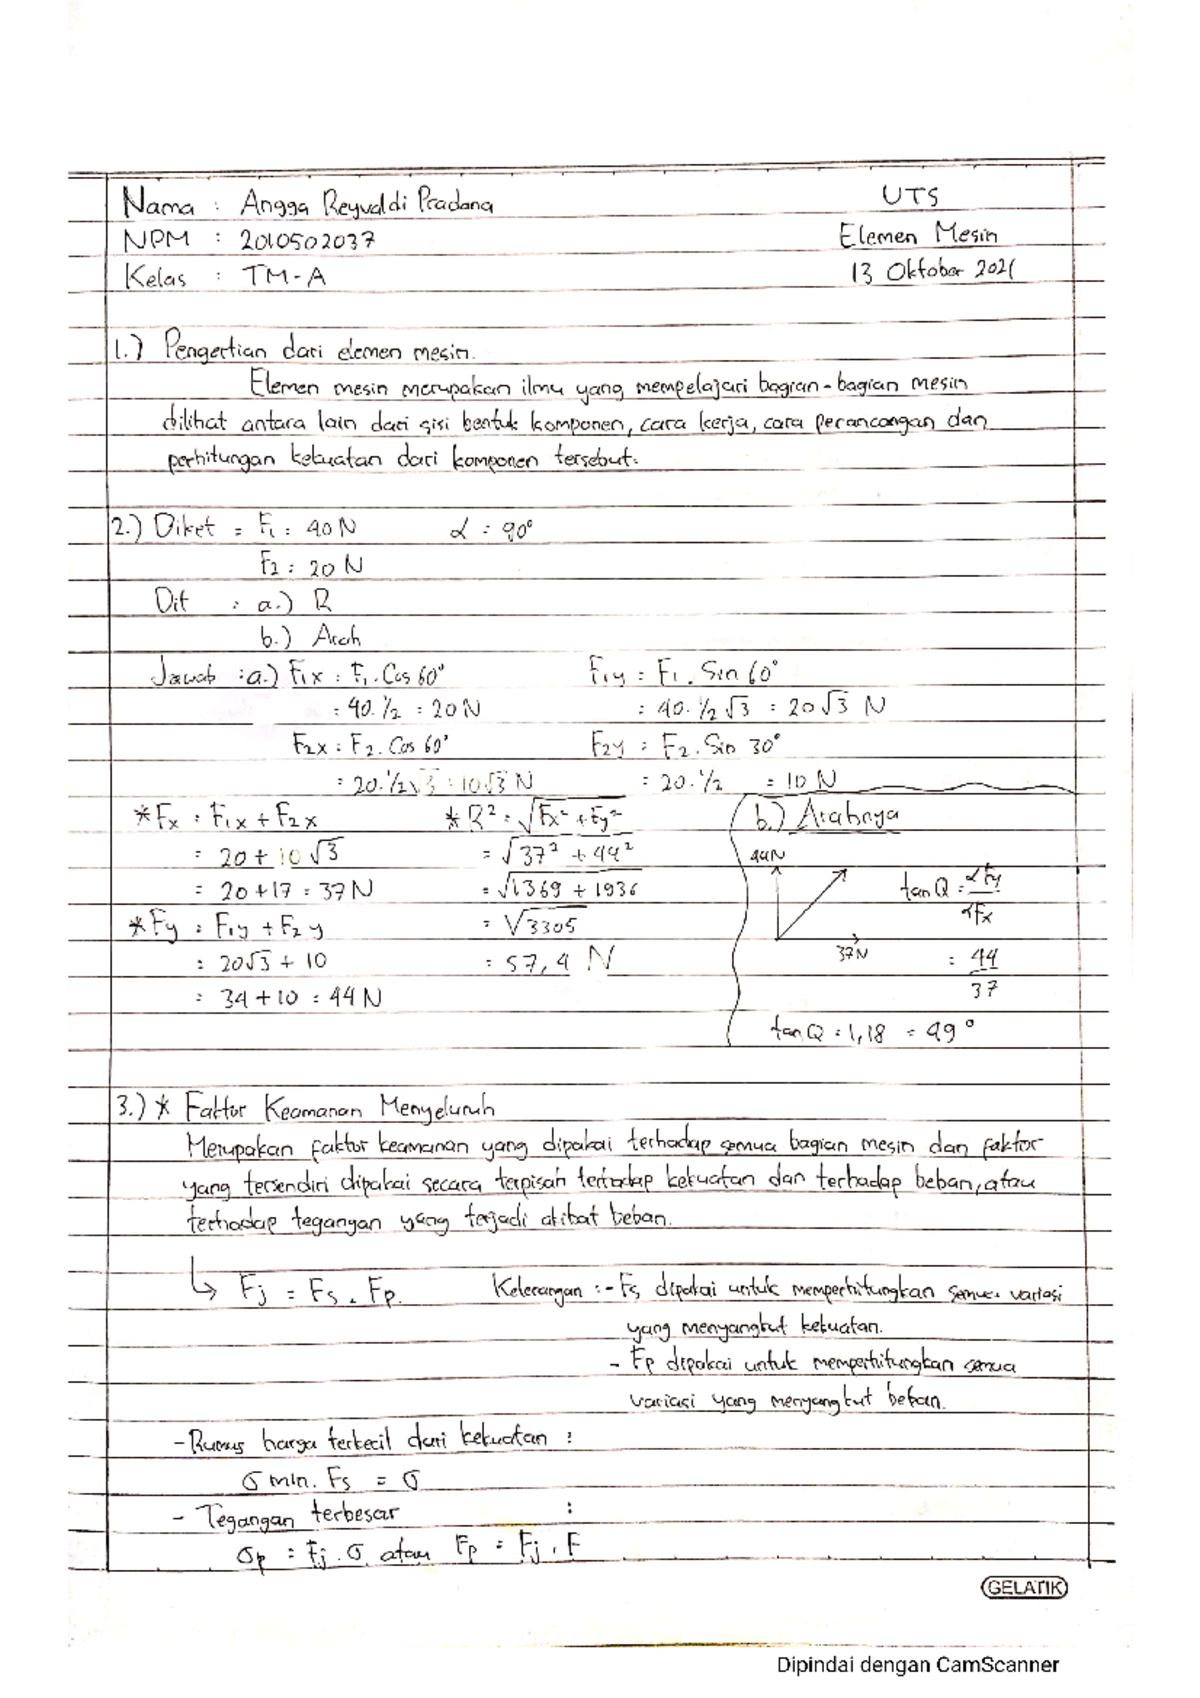 Nama : Angga Reyvaldi Pradana
UTS
NPM : 2010502037
Elemen Mesin
Kelas : TM-A
13 Oktober 2021
1.) Pengertian dari elemen mesin.
Elemen mesin merupakan ilmu yang mempelajari bagian-bagian mesin
dilihat antara lain dari sisi bentuk komponen, cara kerja, cara perancangan dan
perhitungan kekuatan dari komponen tersebut.
2.) Diket = F1 : 40 N α : 90°
F2 : 20 N
Dit : a.) R
b.) Arah
Jawab : a.) F1x : F1 . Cos 60° F1y : F1 . Sin 60°
: 40. 1/2 : 20 N : 40. 1/2 √3 : 20√3 N
F2x : F2 . Cos 60° F2y : F2 . Sin 30°
: 20. 1/2√3 : 10√3 N : 20 . 1/2 : 10 N
*Fx : F1x + F2x
: 20 + 10√3
: 20 + 17 : 37 N
*Fy : F1y + F2y
: 20√3 + 10
: 34 + 10 : 44 N
* R² : √Fx² + Fy²
= √37² + 44²
: √1369 + 1936
: √3305
: 57,4 N
b.) Arahnya
44N
37N
tan Q : ΣFy
ΣFx
: 44
37
tan Q : 1,18 = 49°
3.) * Faktor Keamanan Menyeluruh
Merupakan faktor keamanan yang dipakai terhadap semua bagian mesin dan faktor
yang tersendiri dipakai secara terpisah terhadap kekuatan dan terhadap beban, atau
terhadap tegangan yang terjadi akibat beban.
↳ Fj = Fs . Fp. Keterangan : - Fs dipakai untuk memperhitungkan semua variasi
yang menyangkut kekuatan.
- Fp dipakai untuk memperhitungkan semua
variasi yang menyangkut beban.
- Rumus harga terkecil dari kekuatan :
σ min. Fs = σ
- Tegangan terbesar :
σp : Fj . σ atau Fp : Fj . F
GELATIK
Dipindai dengan CamScanner